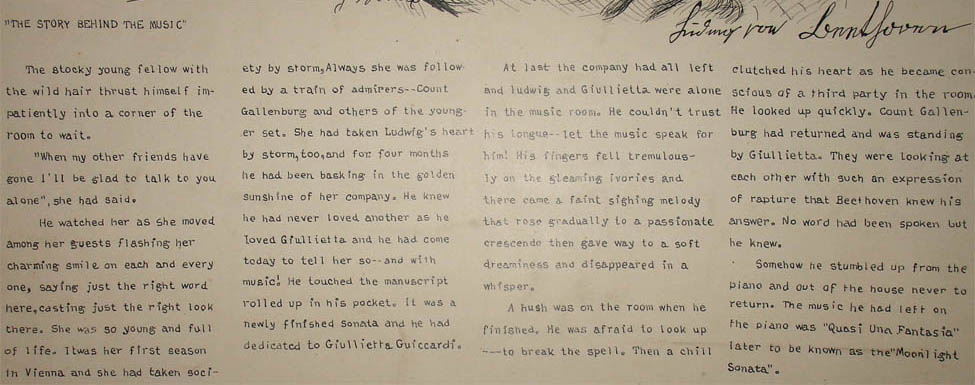 "THE STORY BEHIND THE MUSIC"
The stocky young fellow with
the wild hair thrust himself im-
patiently into a corner of the
room to wait.
"When my other friends have
gone I'll be glad to talk to you
alone", she had said.
He watched her as she moved
among her guests flashing her
charming smile on each and every
one, saying just the right word
here, casting just the right look
there. She was so young and full
of life. Itwas her first season
in Vienna and she had taken soci-
ety by storm, Always she was follow-
ed by a train of admirers--Count
Gallenburg and others of the young-
er set. She had taken Ludwig's heart
by storm,too,and for four months
he had been basking in the golden
sunshine of her company. He knew
he had never loved another as he
loved Giullietta and he had come
today to tell her so--and with
music! He touched the manuscript
rolled up in his pocket. It was a
newly finished Sonata and he had
dedicated to Giullietta Guiccardi.
At last the company had all left
and ludwig and Giullietta were alone
in the music room. He couldn't trust
his tongue--let the music speak for
him! His fingers fell tremulous-
ly on the gleaming ivories and
there came a faint sighing melody
that rose gradually to a passionate
crescendo then gave way to a soft
dreaminess and disappeared in a
whisper.
A hush was on the room when he
finished. He was afraid to look up
---to break the spell. Then a chill
clutched his heart as he became con-
scious of a third party in the room.
He looked up quickly. Count Gallen-
burg had returned and was standing
by Giullietta. They were looking at
each other with such an expression
of rapture that Beethoven knew his
answer. No word had been spoken but
he knew.
Somehow he stumbled up from the
piano and out of the house never to
return. The music he had left on
the piano was "Quasi Una Fantasia"
later to be known as the"Moonlight
Sonata".